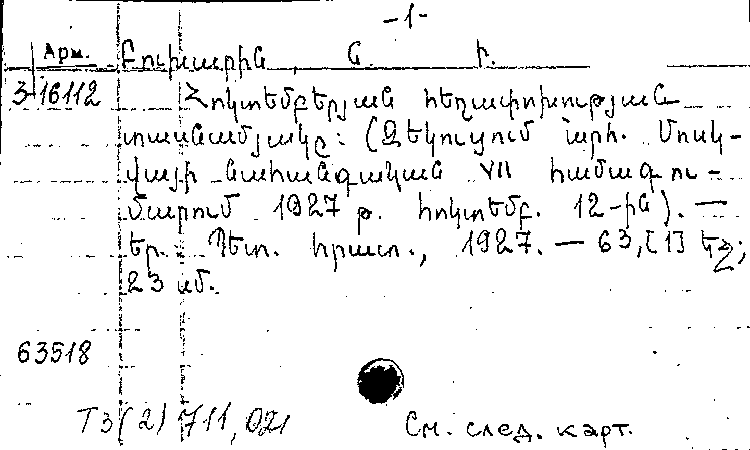 -1-
Арм. Բուխարին, Ն. Ի.
3-16112 Հոկտեմբերյան հեղափոխության
տասնամյակը: (Զեկուցում կար. Մոսկ-
վայի նահանգական VII համագու-
մարում 1927 թ. հոկտեմբ. 12-ին). —
Եր. Պետ. հրատ., 1927. — 63, [1] եջ;
23 սմ.
63518
T3(2)711,021
См. след. карт.